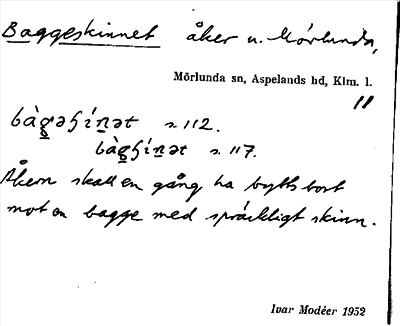 Baggeskinnet åker u. Mörlunda,
Mörlunda sn, Aspelands hd, Klm. l.
11
bàg̲əʃín̲ət s. 112.
bàg̲ʃín̲ət s. 117.
Åkern skall en gång ha bytts bort
mot en bagge med spräckligt skinn.
Ivar Modéer 1952